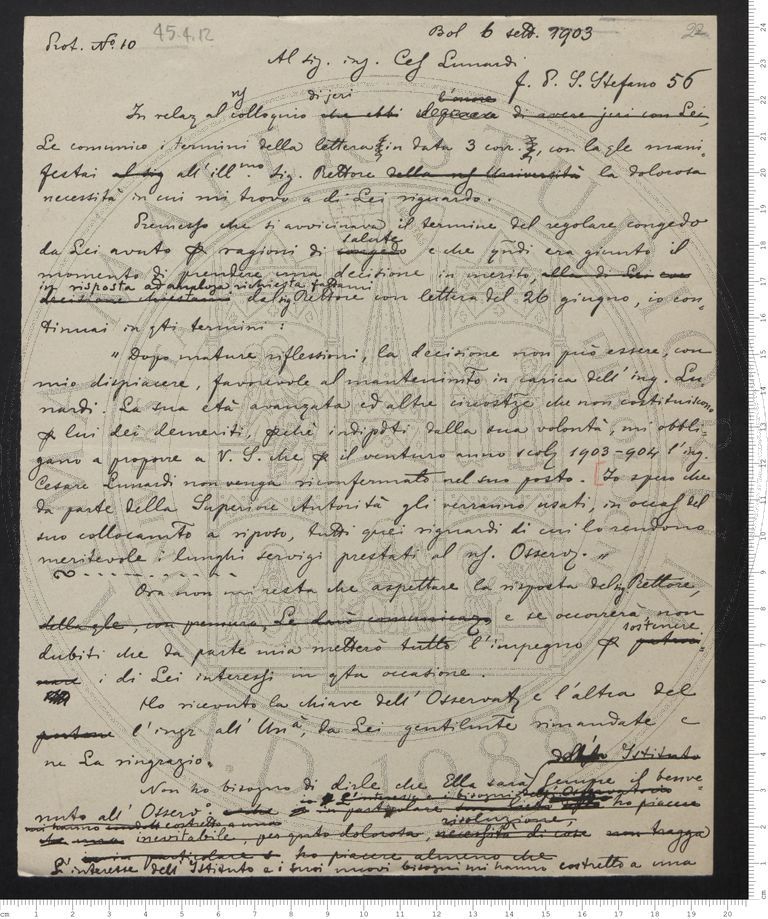 Prot. No. 10 45.4.12 Bol 6 sett. 1903 22
Al sig. ing. Ces Lunardi
f. P. S. Stefano 56
In relaz al nj colloquio che ebbi di jeri di avere jeri con Lei,
Le comunico i termini della lettera in data 3 corr., con la qle mani-
festai al sig all'ill.mo Sig. Rettore della nj Università la dolorosa
necessità in cui mi trovo a di Lei riguardo.
Premesso che si avvicinava il termine del regolare congedo
da Lei avuto p ragioni di congedo salute e che qndi era giunto il
momento di prendere una decisione in merito, alla di Lei
in risposta ad analoga richiesta fattami
decisione chiestami dal sig Rettore con lettera del 26 giugno, io con-
tinuai in qti termini:
"Dopo mature riflessioni, la decisione non può essere, con
mio dispiacere, favorevole al mantenimto in carica dell'ing. Lu-
nardi. La sua età avanzata ed altre circostze che non costituiscono
p lui dei demeriti, pchè indipdti dalla sua volontà, mi obbli-
gano a proporre a V. S. che p il venturo anno scol 1903-904 l'ing.
Cesare Lunardi non venga riconfermato nel suo posto. Io spero che
da parte della Superiore Autorità gli verranno usati, in occas del
suo collocamto a riposo, tutti quei riguardi di cui lo rendono
meritevole i lunghi servigi prestati al nj. Osserv. "
Ora non mi resta che aspettare la risposta del sig Rettore,
della qle, con premura, Le darò comunicaz e se occorrerà, non
dubiti che da parte mia metterò tutto l'impegno p sostenere
i di Lei interessi in qta occasione.
Ho ricevuto la chiave dell'Osservat e l'altra del
portone l'ingr all'Unità, da Lei gentilmte rimandate e
ne La ringrazio.
Istituto
Non ho bisogno di dirle che Ella sarà sempre il benve-
nuto all'Osserv. in particolare ho piacere
inevitabile, per quto dolorosa, necessità di cose risoluzione, non tragga
in particolare ho piacere almeno che
L'interesse dell'Istituto e i suoi nuovi bisogni mi hanno costretto a una